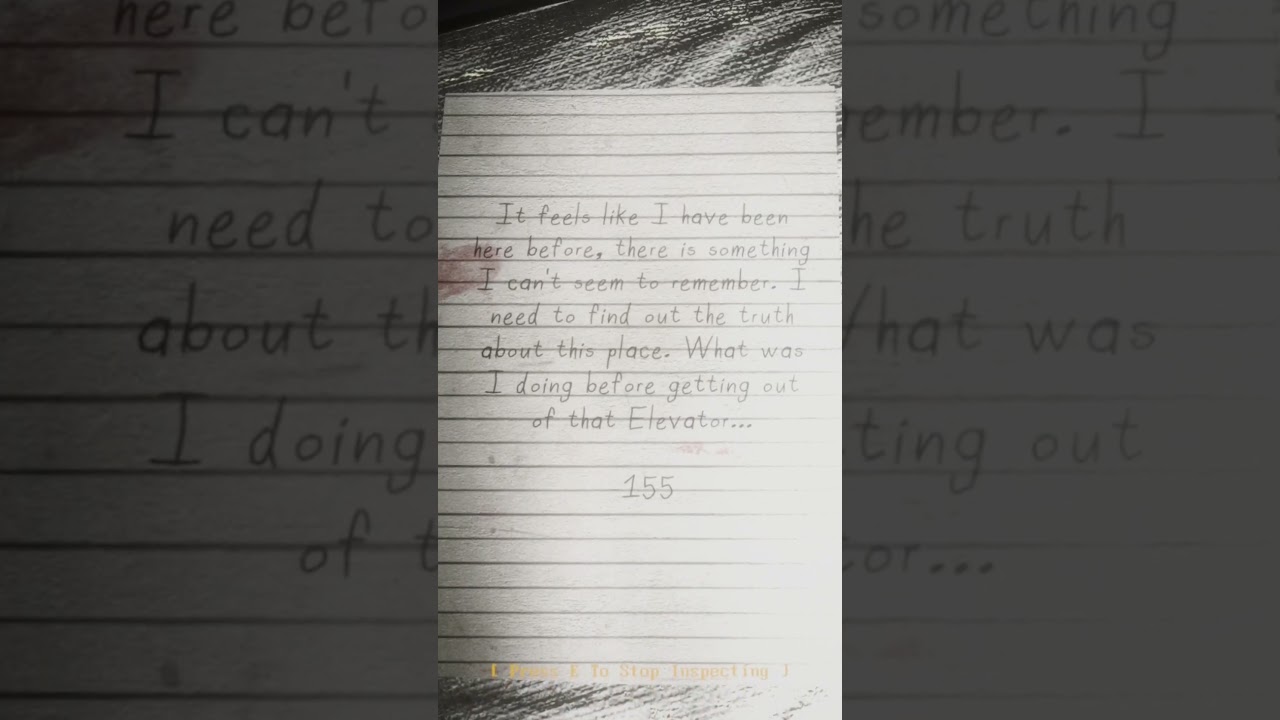 It feels like I have been
here before, there is something
I can't seem to remember. I
need to find out the truth
about this place. What was
I doing before getting out
of that Elevator...
155
[ Press E To Stop Inspecting ]